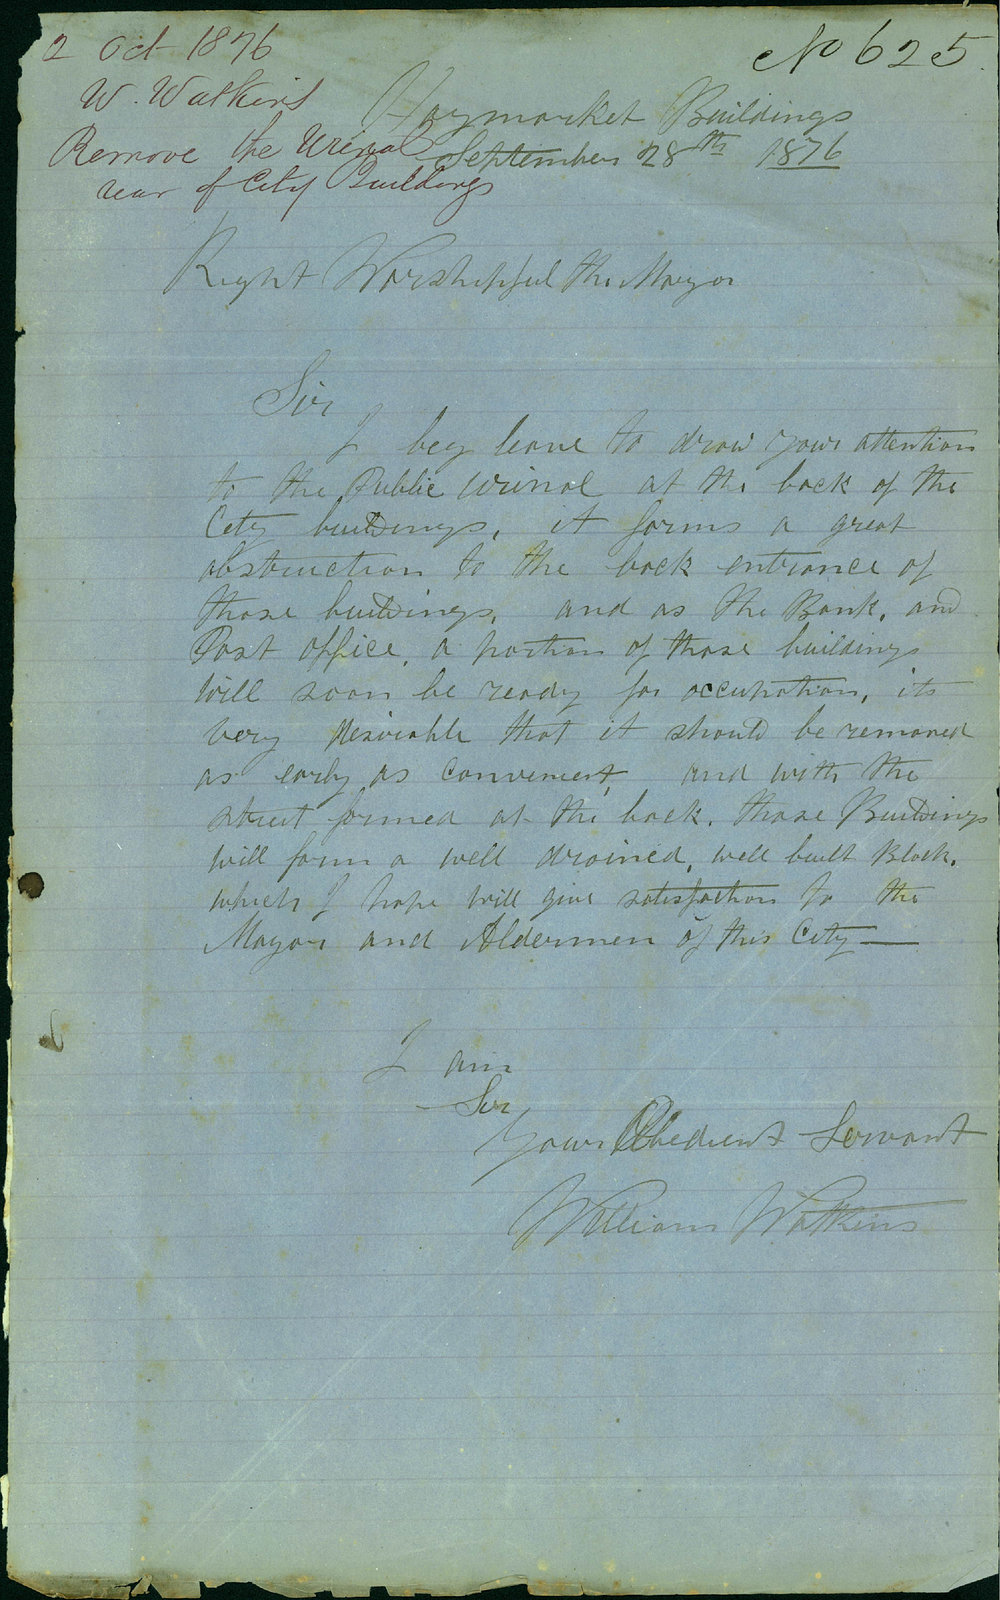 2 Oct 1876
No 625.
W. Watkins
Remove the Urinal
rear of City Buildings
Haymarket Buildings
September 28th 1876
Right Worshipful the Mayor
Sir
I beg leave to draw your attention
to the Public urinal at the back of the
City buildings, it forms a great
obstruction to the back entrance of
those buildings, and as the Bank, and
Post office, a portion of those buildings
will soon be ready for occupation, its
very desirable that it should be removed
as early as convenient, and with the
street formed at the back. those Buildings
will form a well drained, well built Block,
which I hope will give satisfaction to the
Mayor and Aldermen of this City—
I am
Sir
Your Obedient Servant
William Watkins